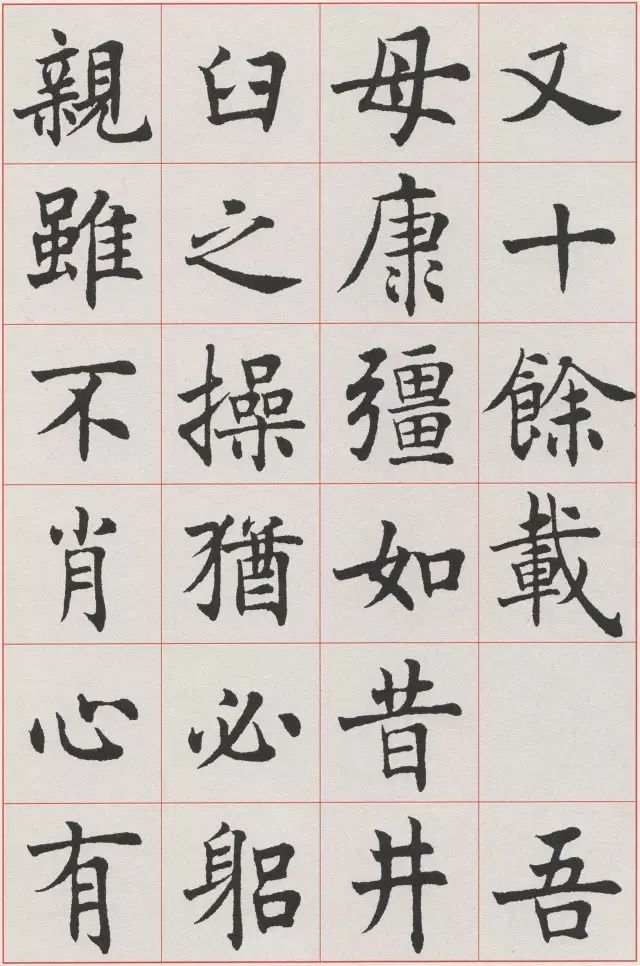 又十餘載吾
母康彊如昔井
臼之操猶必躳
親雖不肖心有